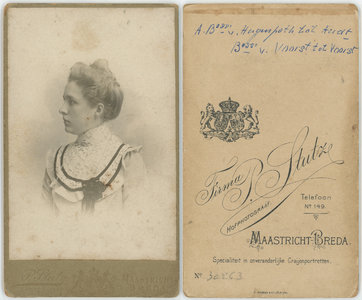 A. Bsse v. Hugenpoth tot Aerdt
Bsse v. Voorst tot Voorst
Firma P. Stutz
HOFPHOTOGRAAF
Telefoon
No 149.
MAASTRICHT-BREDA.
Specialiteit in onveranderlijke Crayonportretten.
No 30863